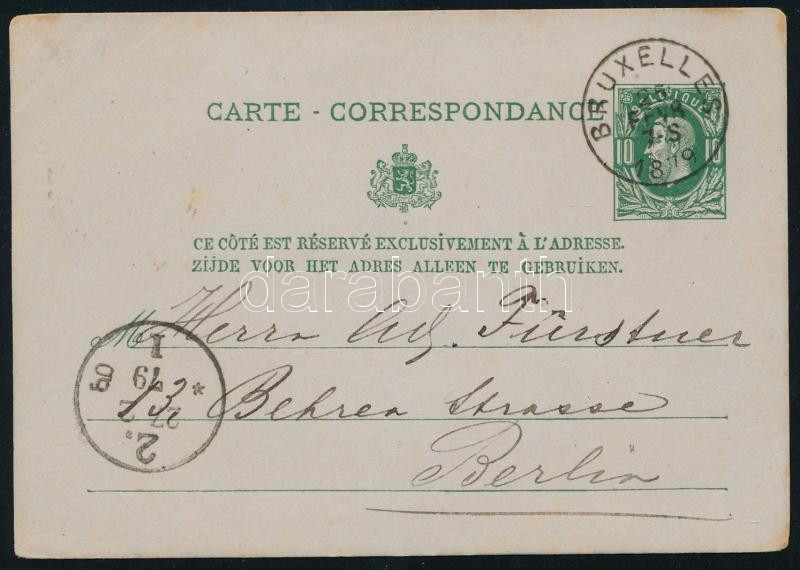 BRUXELLES
25
FEVR
7-S
1879
BELGIQUE
10 10
CARTE - CORRESPONDANCE
CE CÔTÉ EST RÉSERVÉ EXCLUSIVEMENT À L'ADRESSE.
ZIJDE VOOR HET ADRES ALLEEN TE GEBRUIKEN.
darabanth
M Herrn Ad. Fürstner
13, Behren Strasse
Berlin
I
79
27
2
2.
*